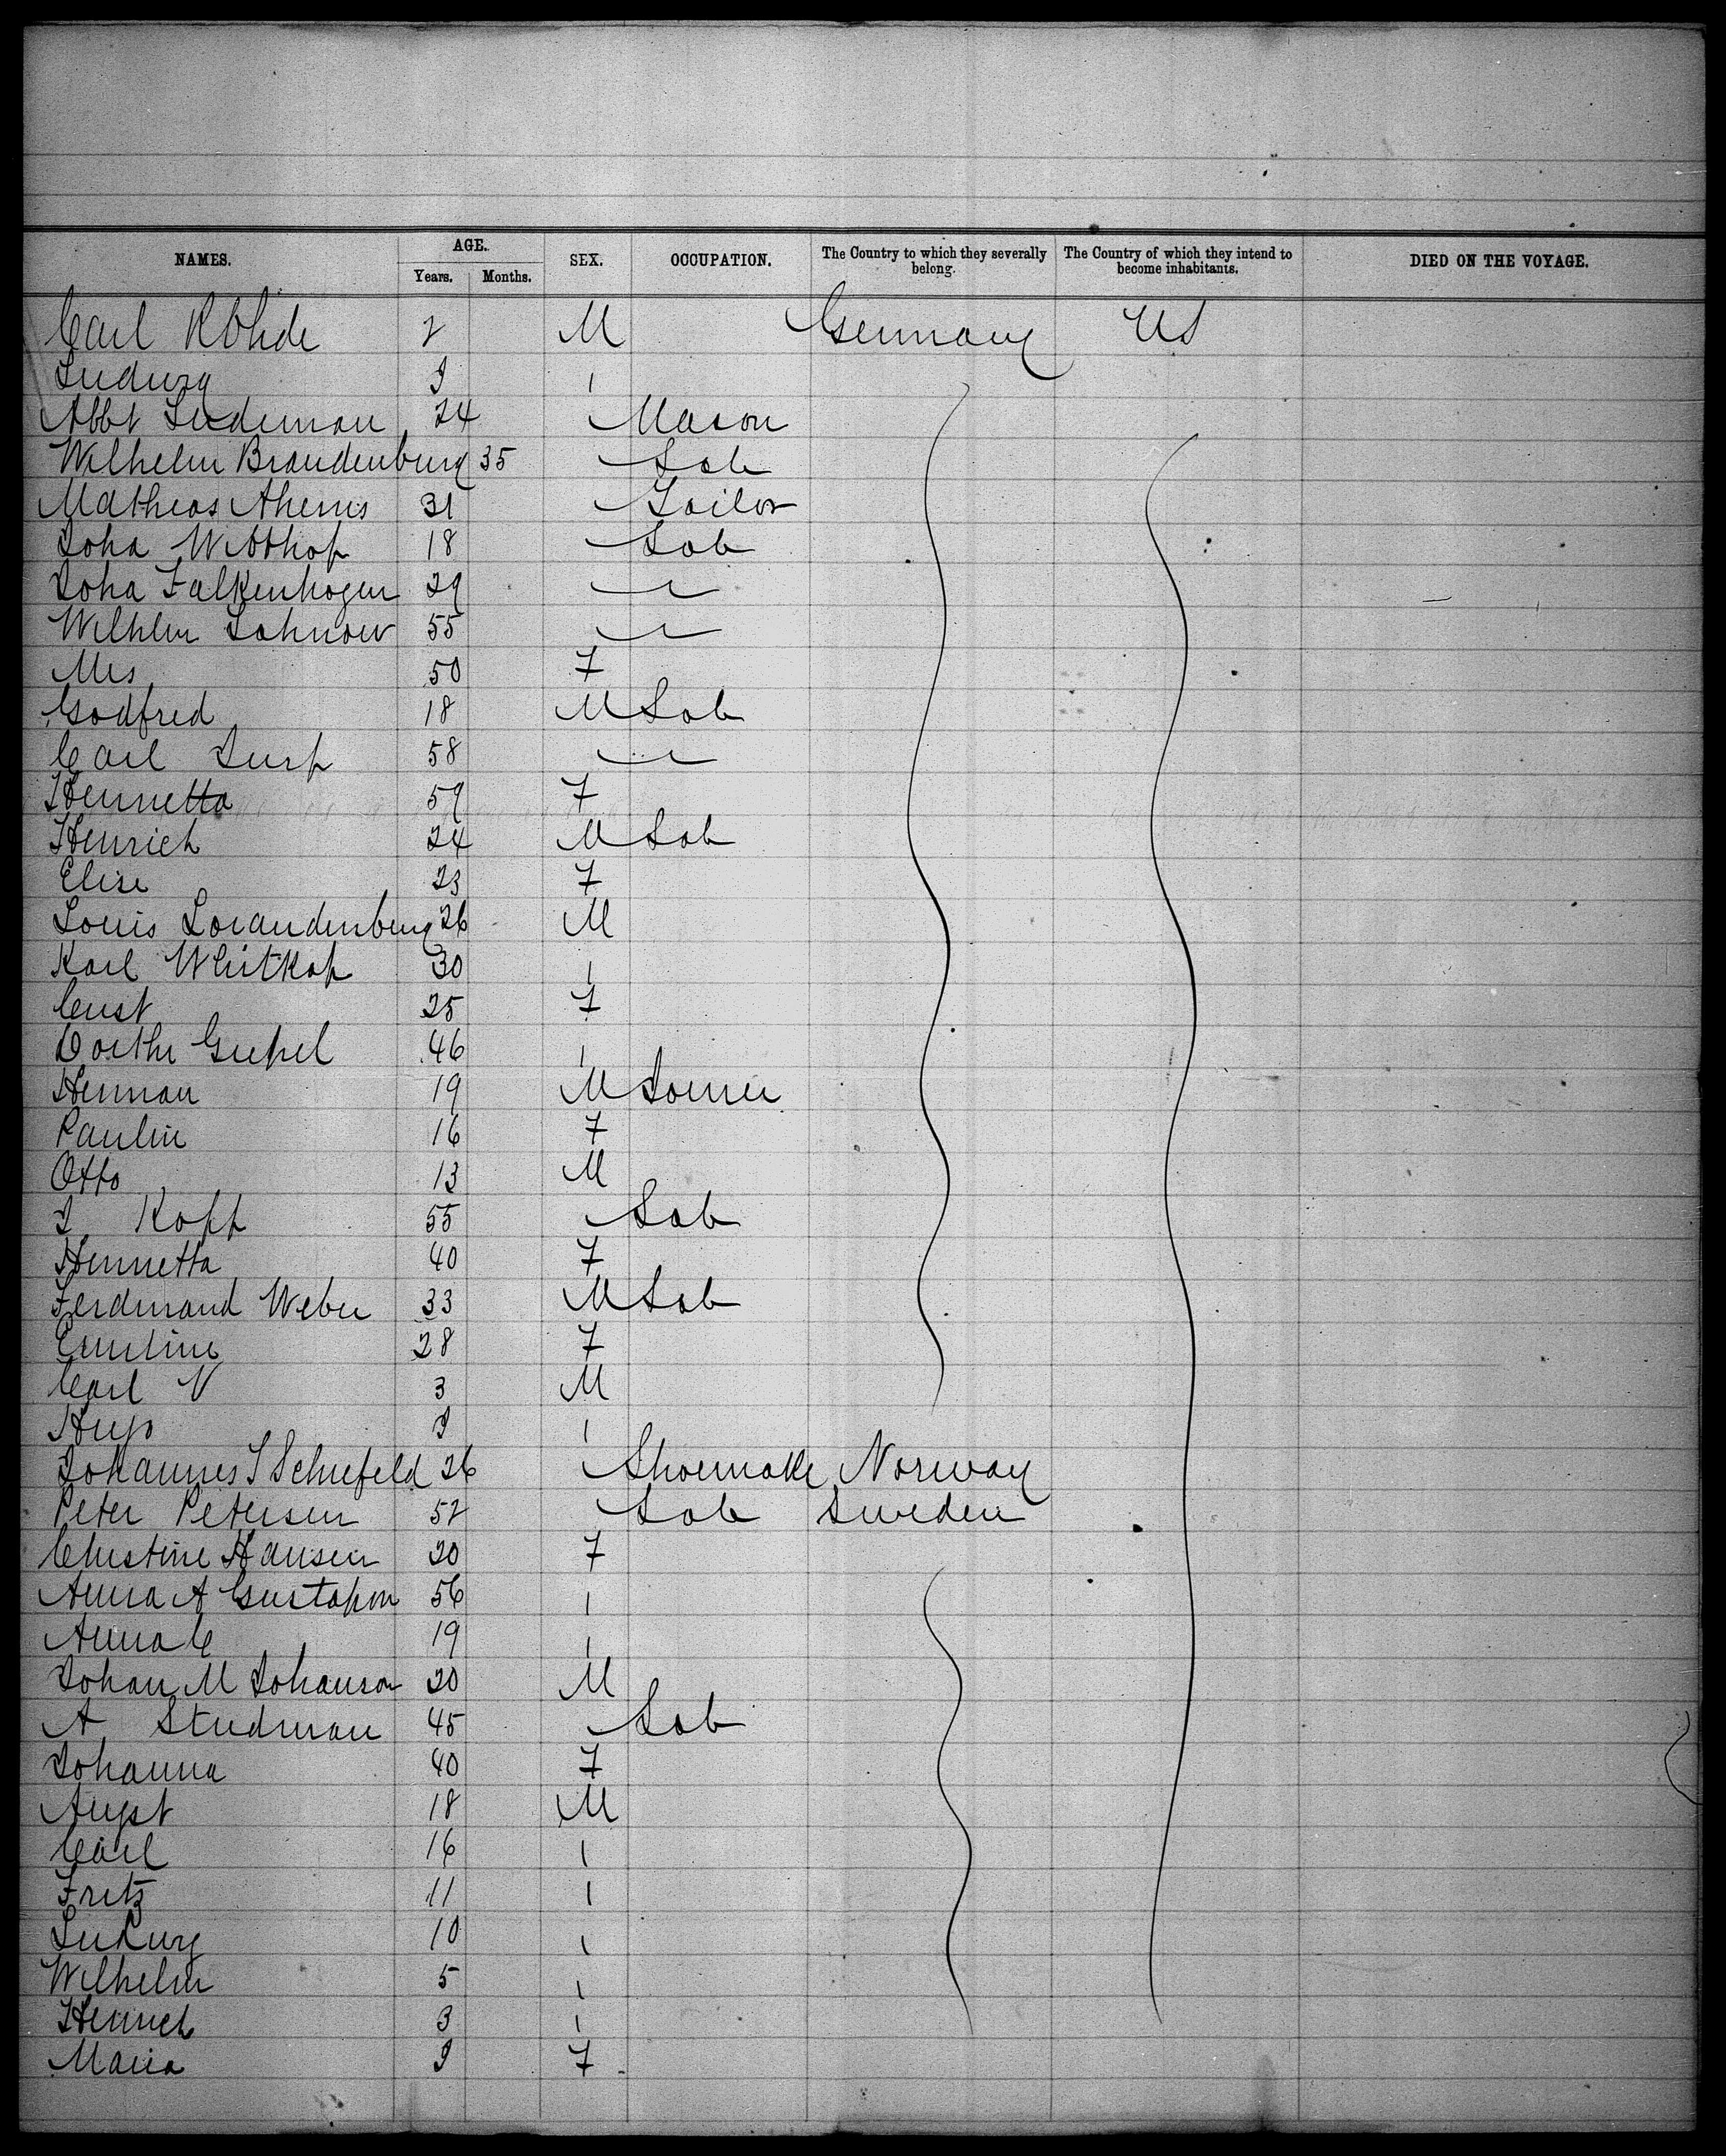 NAMES. AGE. Years. Months. SEX. OCCUPATION. The Country to which they severally belong. The Country of which they intend to become inhabitants. DIED ON THE VOYAGE.
Carl Rohde 2 M Germany US
Ludwig 9 1
Abbt Ludeman 24 Mason
Wilhelm Brandenburg 35 Lab
Matheas Ahrens 31 Tailor
Joha Witthop 18 Lab
Joha Falkenhogen 29
Wilhlm Lahnow 55
Mrs 50 F
Godfred 18 M Lab
Carl 58
Hennetta 59 F
Henrich 24 M Lab
Elise 23 F
Louis Lorandenburg 26 M
Karl Whitkop 30 1
25 F
Dorthe 46 1
Herman 19 M
Paulin 16 F
Otto 13 M
J Kopp 55 Lab
Hennetta 40 F
Ferdinand Weber 33 M Lab
Emeline 28 F
Carl V 3 M
Hugo 9 1
Johannes S Schiefeld 26 Shoemake Norway
Peter Petersen 52 Lab Sweden
Christine Hansen 20 F
Anna A Gustafson 56 1
Anna C 19 1
Johan M Johanson 20 M
A Studman 45 Lab
Johanna 40 F
Augst 18 M
Carl 16 1
Fritz 11 1
Ludwig 10 1
Wilhelm 5 1
Henrich 3 1
Maria 9 F